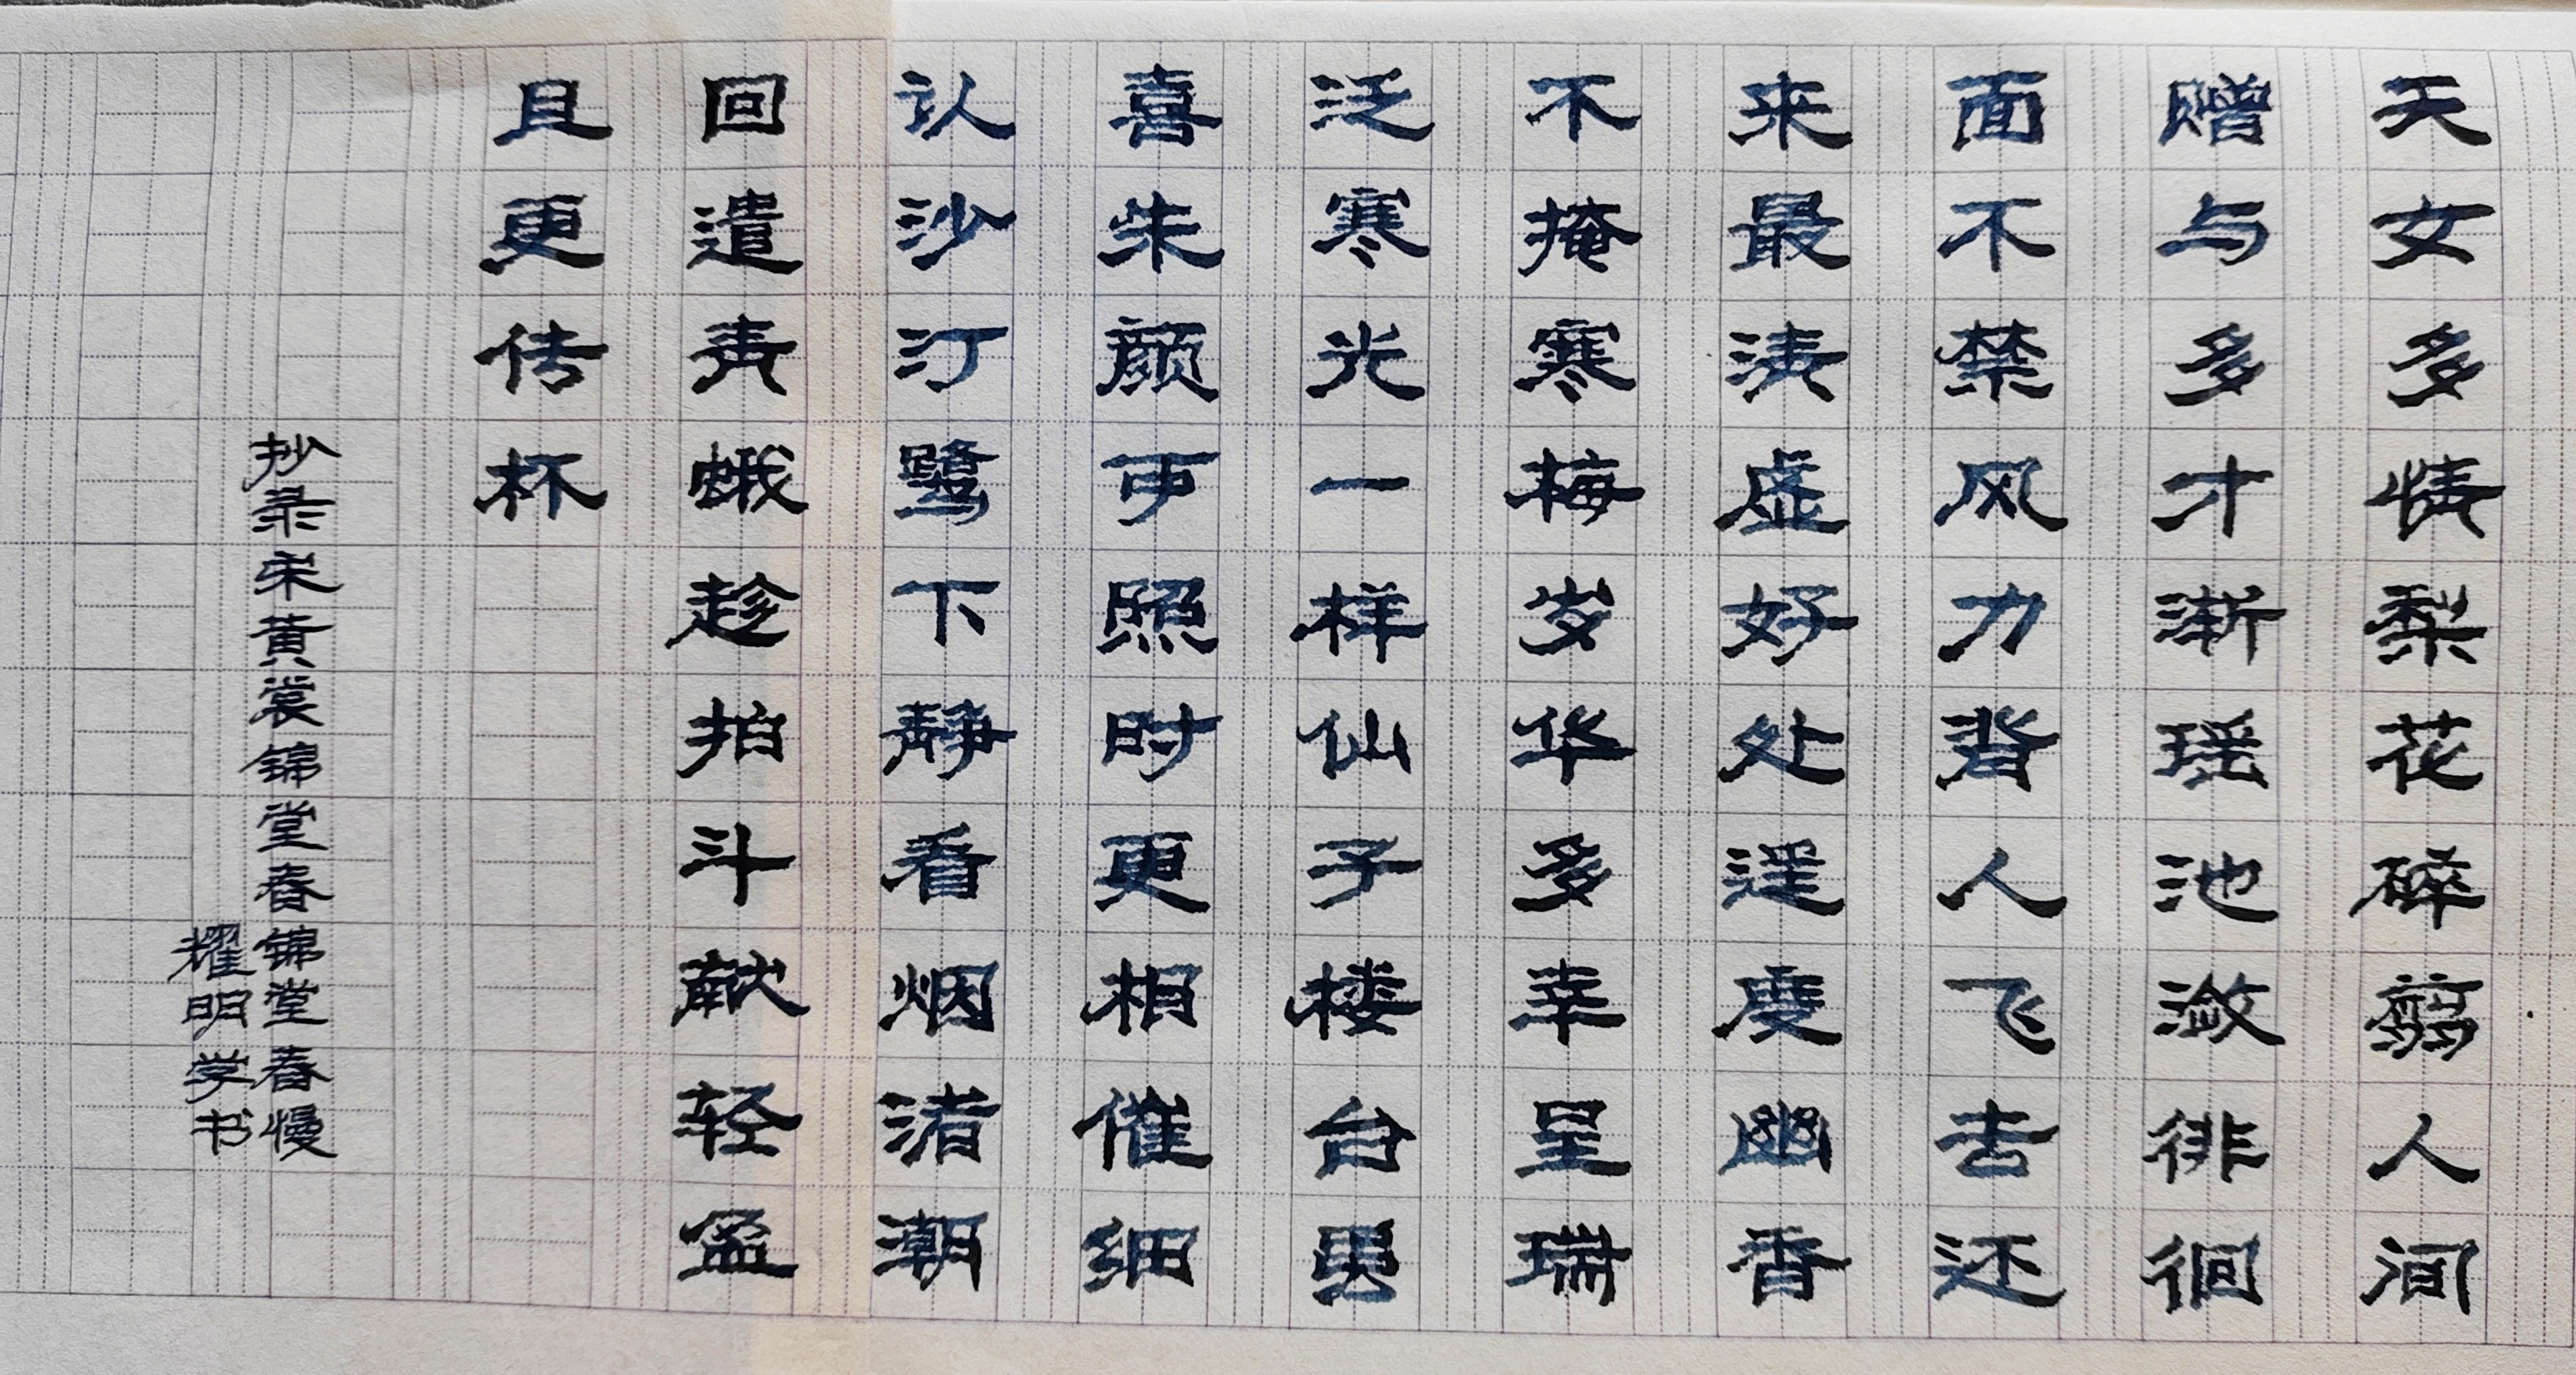 天女多情梨花碎翦人间
赠与多才渐瑶池潋徘徊
面不禁风力背人飞去还
来最清虚好处遥度幽香
不掩寒梅岁华多幸呈瑞
泛寒光一样仙子楼台虽
喜朱颜可照时更相催细
认沙汀鹭下静看烟渚潮
回遣青蛾趁拍斗献轻盈
且更传杯
抄录宋黄裳锦堂春锦堂春慢
耀明学书